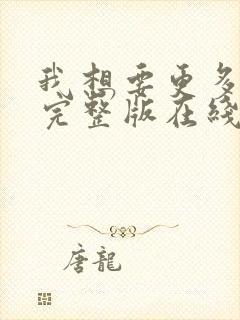 我想要更多
完整版在线
唐龍